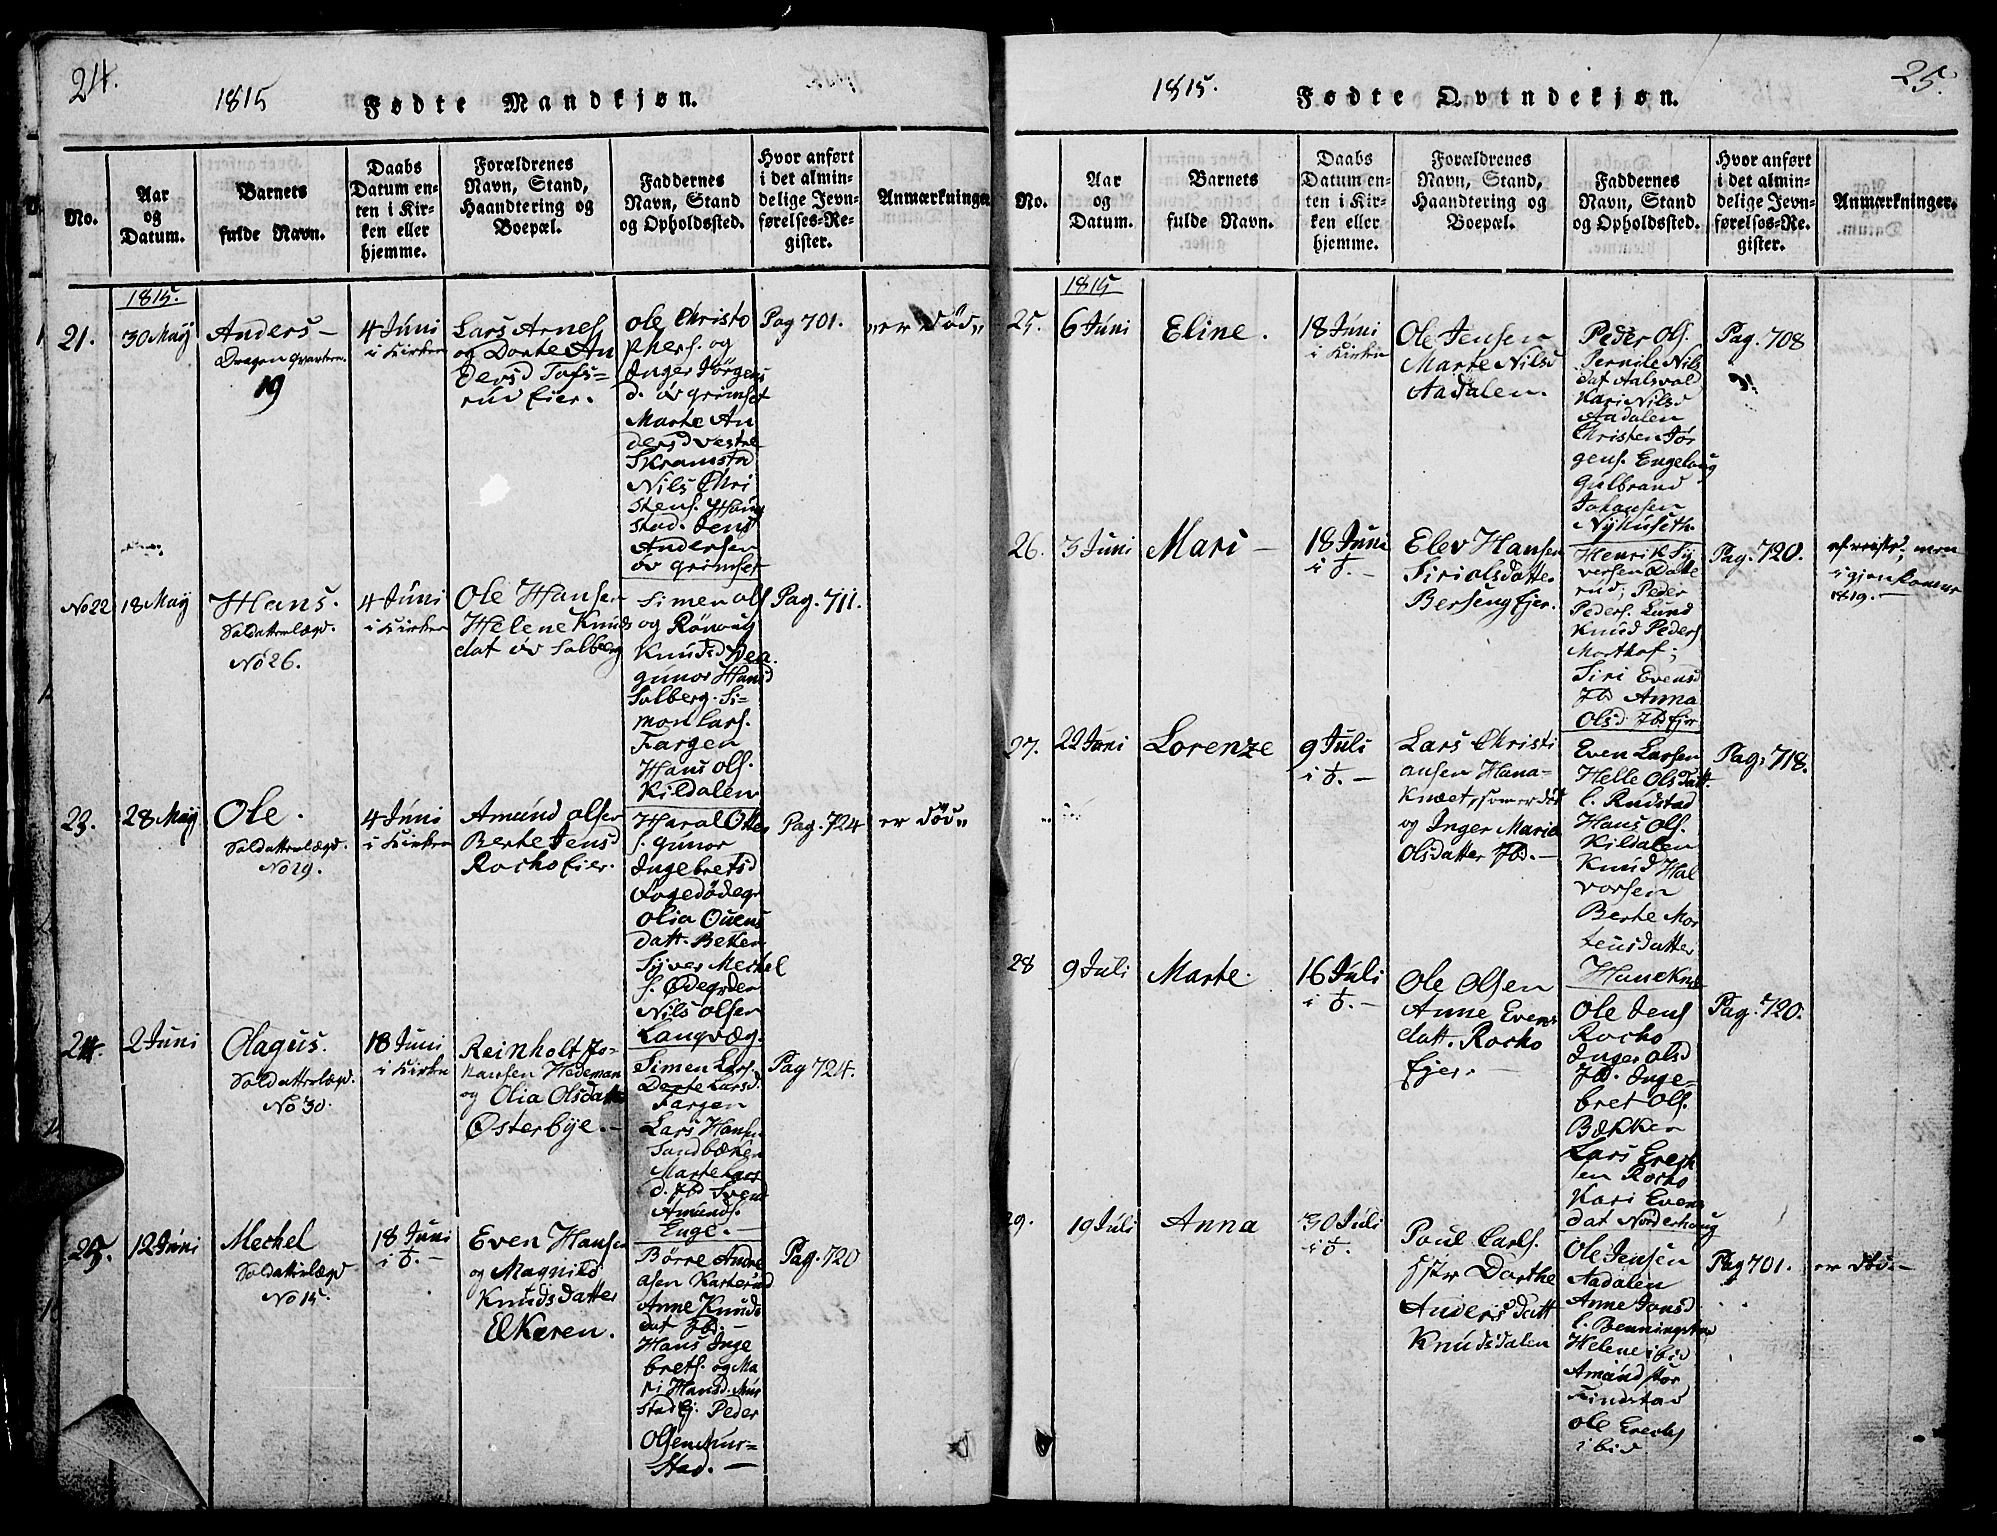 24.
1815
Fødte Mandkjøn.
No.
Aar
og
Datum.
Barnets
fulde Navn.
Daabs
Datum en-
ten i Kir-
ken eller
hjemme.
Forældrenes
Navn, Stand,
Haandtering og
Boepæl.
Faddernes
Navn, Stand
og Opholdssted.
Hvor anført
i det almin-
delige Jevn-
førelses-Re-
gister.
Anmærkninger.
1815.
21.
30 May
Anders –
Dragon Qvarteer.
19
4 Juni
i Kirken
Lars Arnes
og Dorte An
dersd Tofs=
rud Eier.
Ole Christo
phers. og
Inger Jörgens
d. öv grimset
Marte An
dersd vestre
Skramstad
Nils Chri
stens. Haug
stad. Jens
Andersen
öv grimset
Pag 701.
"er död"
No 22
18 May
Hans.
Soldatterlægd.
No 26.
4 Juni
i Kirken
Ole Hansen
Helene Knuds
dat öv Solberg
Simen Ols
og Rönnug
Knudsd
gunor Hansd
Solberg. Si=
mon Lars.
Fargen
Hans Ols.
Kildalen
Pag. 711.
23.
28 May
Ole.
Soldatterlægd.
No 29.
4 Juni
i Kirken
Amund Olsen
Berte Jensd
Rocho Eier.
Haral Otte
s. gunor
Ingebretsd
Olia Ouens
datt. Beken
Syver Mechel
s. Ödegrden
Nils Olsen
Langvæg.
Pag. 724
er död"
24.
2 Juni
Olagus.
Soldatterlægd.
No 30.
18 Juni
i Kirken
Reinholt Jo=
hansen Hedeman
og Olia Olsdatter
Østerbye. –
Simen Lars.
Dorte Larsd.
Fargen
Lars Hansen
Sandbæken
Marte Lars
d. Ibd Svend
Amunds.
Enge. –
Pag 724.
25.
12 Juni
Mechel
Soldatterlægd
No 15.
18 Juni
i do. –
Even Hansen
og Magnild
Knudsdatter
Elkæren.
Börre Andre
asen Karterud
Anne Knuds
dat Ibd. –
Hans Inge
brets. og Ma
ri Hansd. Mur
stad Ej. Peder
Olsen Mur=
stad. –
Pag. 720
25.
1815.
Fødte Qvindekjøn.
No.
Aar
og
Datum.
Barnets
fulde Navn.
Daabs
Datum en-
ten i Kir-
ken eller
hjemme.
Forældrenes
Navn, Stand,
Haandtering og
Boepæl.
Faddernes
Navn, Stand
og Opholdssted.
Hvor anført
i det almin-
delige Jevn-
førelses-Re-
gister.
Anmærkninger.
1815
25.
6 Juni
Eline.
18 Juni
i Kirken
Ole Jensen
Marte Nilsd
Aadalen.
Peder Ols.
Pernile Nils
dat Aalsvold
Kari Nilsd
Aadalen
Christen Jör
gens. Engelaug
Gulbrand
Johansen
Nyhuseth.
Pag. 708
26.
3 Juni
Mari –
18 Juni
i do. –
Elev Hansen
Siri Olsdatter
Berseng Ejer.
Henrik Sy
versen Datte
rud; Peder
Peders. Lund
Knud Peders
Morthof;
Siri Evensd
Ibd Anna
Olsd. Ibd Ejer
Pag. 720.
afreist, men
igjenkommen
1819. –
27.
22 Juni
Lorenze
9 Juli
i do. –
Lars Christi
ansen Hana=
knæet, som er död
og Inger Maria
Olsdatter Ibd. –
Even Larsen
Helle Olsdatt.
l. Rudstad
Hans Ols.
Kildalen
Knud Hal
vorsen
Berte Mor
tensdatter
Haneknæ
Pag. 718.
28
9 Juli
Marte.
16 Juli
i do. –
Ole Olsen
Anne Evens
datt. Rocho
Ejer. –
Ole Jens
Rocho
Inger Olsd
Ibd. Inge=
bret Ols.
Bækken
Lars Erech
sen Rocho
Kari Evens
dat Norderhoug
Pag. 720.
29.
19 Juli
Anna
30 Juli
i do.
Poul Carls.
Dorthe
Andersdatt
Knudsdalen
Ole Jensen
Aadalen
Anne Jonsd
l. Benningstad
Helene ibid
Amund stor
Findstad
Ole Erechs
ibid
Pag 701.
er död –